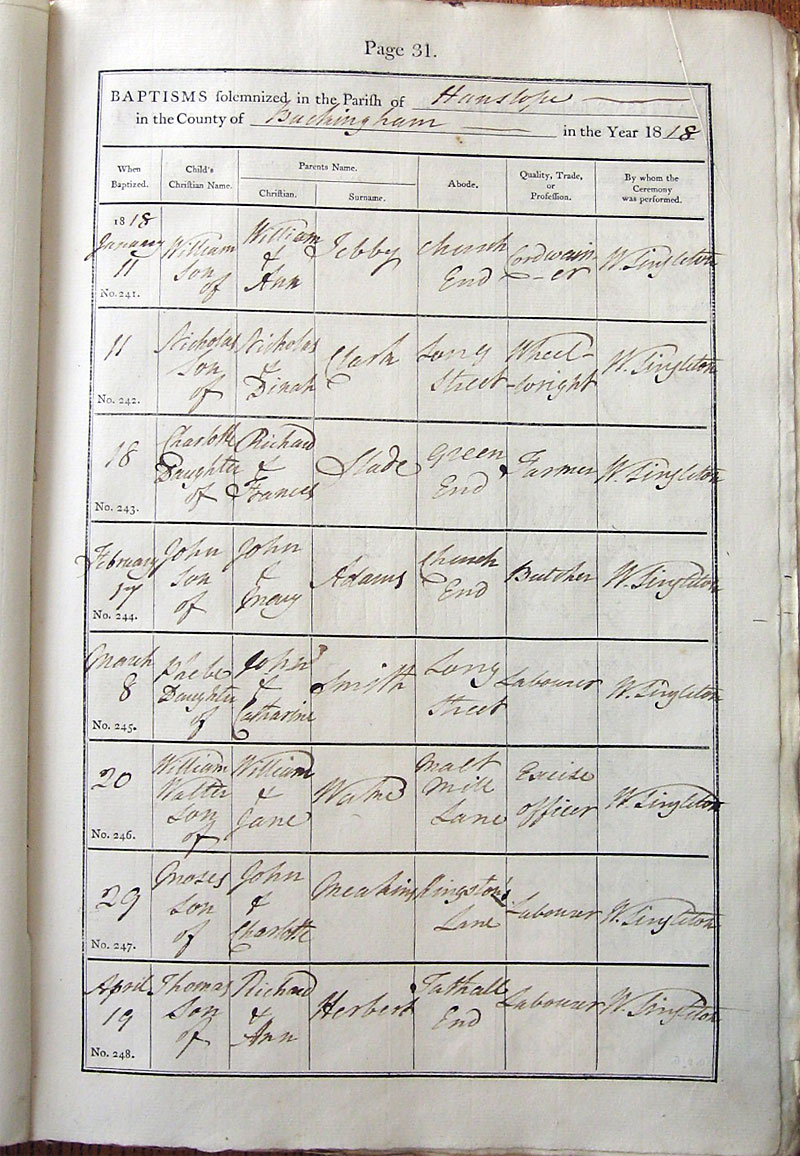 Page 31.
BAPTISMS solemnized in the Parish of Hanslope
in the County of Buckingham in the Year 1818
When Baptized. Child's Christian Name. Parents Name. Abode. Quality, Trade, or Profession. By whom the Ceremony was performed.
Christian. Surname.
1818 January 11 No. 241. William son of William & Ann Jebby Church End Cordwain-er W. Singleton
11 No. 242. Nicholas son of Nicholas & Dinah Clark Long Street Wheel-wright W. Singleton
18 No. 243. Charlotte Daughter of Richard & Frances Slade Green End Farmer W. Singleton
February 17 No. 244. John son of John & Mary Adams Church End Butcher W. Singleton
March 8 No. 245. Phebe Daughter of John & Catharine Smith Long Street Labourer W. Singleton
20 No. 246. William Walter son of William & Jane Malt Mill Lane Excise officer W. Singleton
29 No. 247. Moses son of John & Charlotte Meakins Kingston's Lane Labourer W. Singleton
April 19 No. 248. Thomas Son of Richard & Ann Herbert Tathall End Labourer W. Singleton